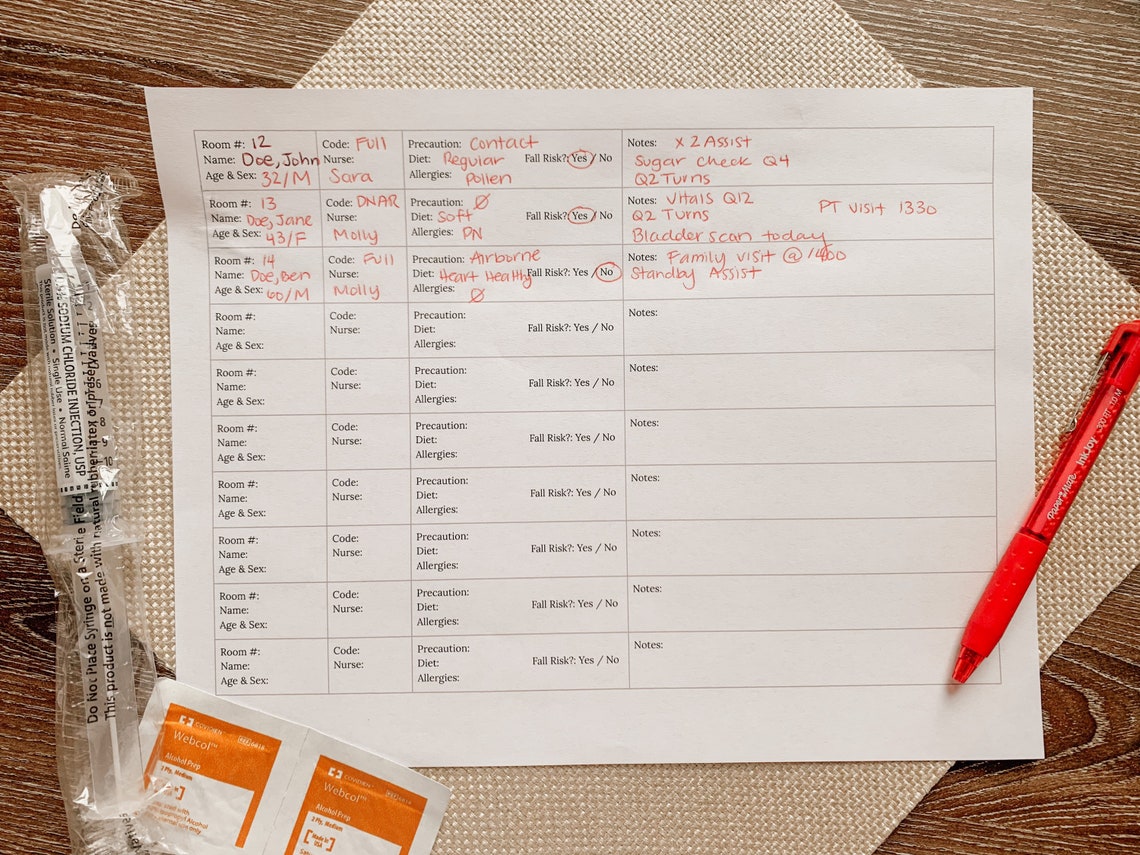 Room #: 12
Name: Doe, John
Age & Sex: 32/M
Code: Full
Nurse:
Sara
Precaution: Contact
Diet: Regular Fall Risk?: Yes / No
Allergies: Pollen
Notes: x 2 Assist
Sugar check Q4
Q2 Turns
Room #: 13
Name: Doe, Jane
Age & Sex: 43/F
Code: DNAR
Nurse:
Molly
Precaution: Ø
Diet: Soft Fall Risk?: Yes / No
Allergies: PN
Notes: Vitals Q12
Q2 Turns PT visit 1330
Bladder scan today
Room #: 14
Name: Doe, Ben
Age & Sex: 60/M
Code: Full
Nurse:
Molly
Precaution: Airborne
Diet: Heart Healthy Fall Risk?: Yes / No
Allergies: Ø
Notes: Family visit @ 1400
Standby Assist
Room #:
Name:
Age & Sex:
Code:
Nurse:
Precaution:
Diet: Fall Risk?: Yes / No
Allergies:
Notes:
Room #:
Name:
Age & Sex:
Code:
Nurse:
Precaution:
Diet: Fall Risk?: Yes / No
Allergies:
Notes:
Room #:
Name:
Age & Sex:
Code:
Nurse:
Precaution:
Diet: Fall Risk?: Yes / No
Allergies:
Notes:
Room #:
Name:
Age & Sex:
Code:
Nurse:
Precaution:
Diet: Fall Risk?: Yes / No
Allergies:
Notes:
Room #:
Name:
Age & Sex:
Code:
Nurse:
Precaution:
Diet: Fall Risk?: Yes / No
Allergies:
Notes:
Room #:
Name:
Age & Sex:
Code:
Nurse:
Precaution:
Diet: Fall Risk?: Yes / No
Allergies:
Notes:
Room #:
Name:
Age & Sex:
Code:
Nurse:
Precaution:
Diet: Fall Risk?: Yes / No
Allergies:
Notes:
SODIUM CHLORIDE INJECTION USP
Sterile Solution • Single Use • Normal Saline
Do Not Place Syringe on a Sterile Field
This product is not made with natural rubber latex or preservatives
Paper Mate InkJoy 300 RT 1.0 M
COVIDIEN
Webcol™
Alcohol Prep
2 Ply, Medium
COVIDIEN
Webcol™
Alcohol Prep
2 Ply, Medium
Made in
USA